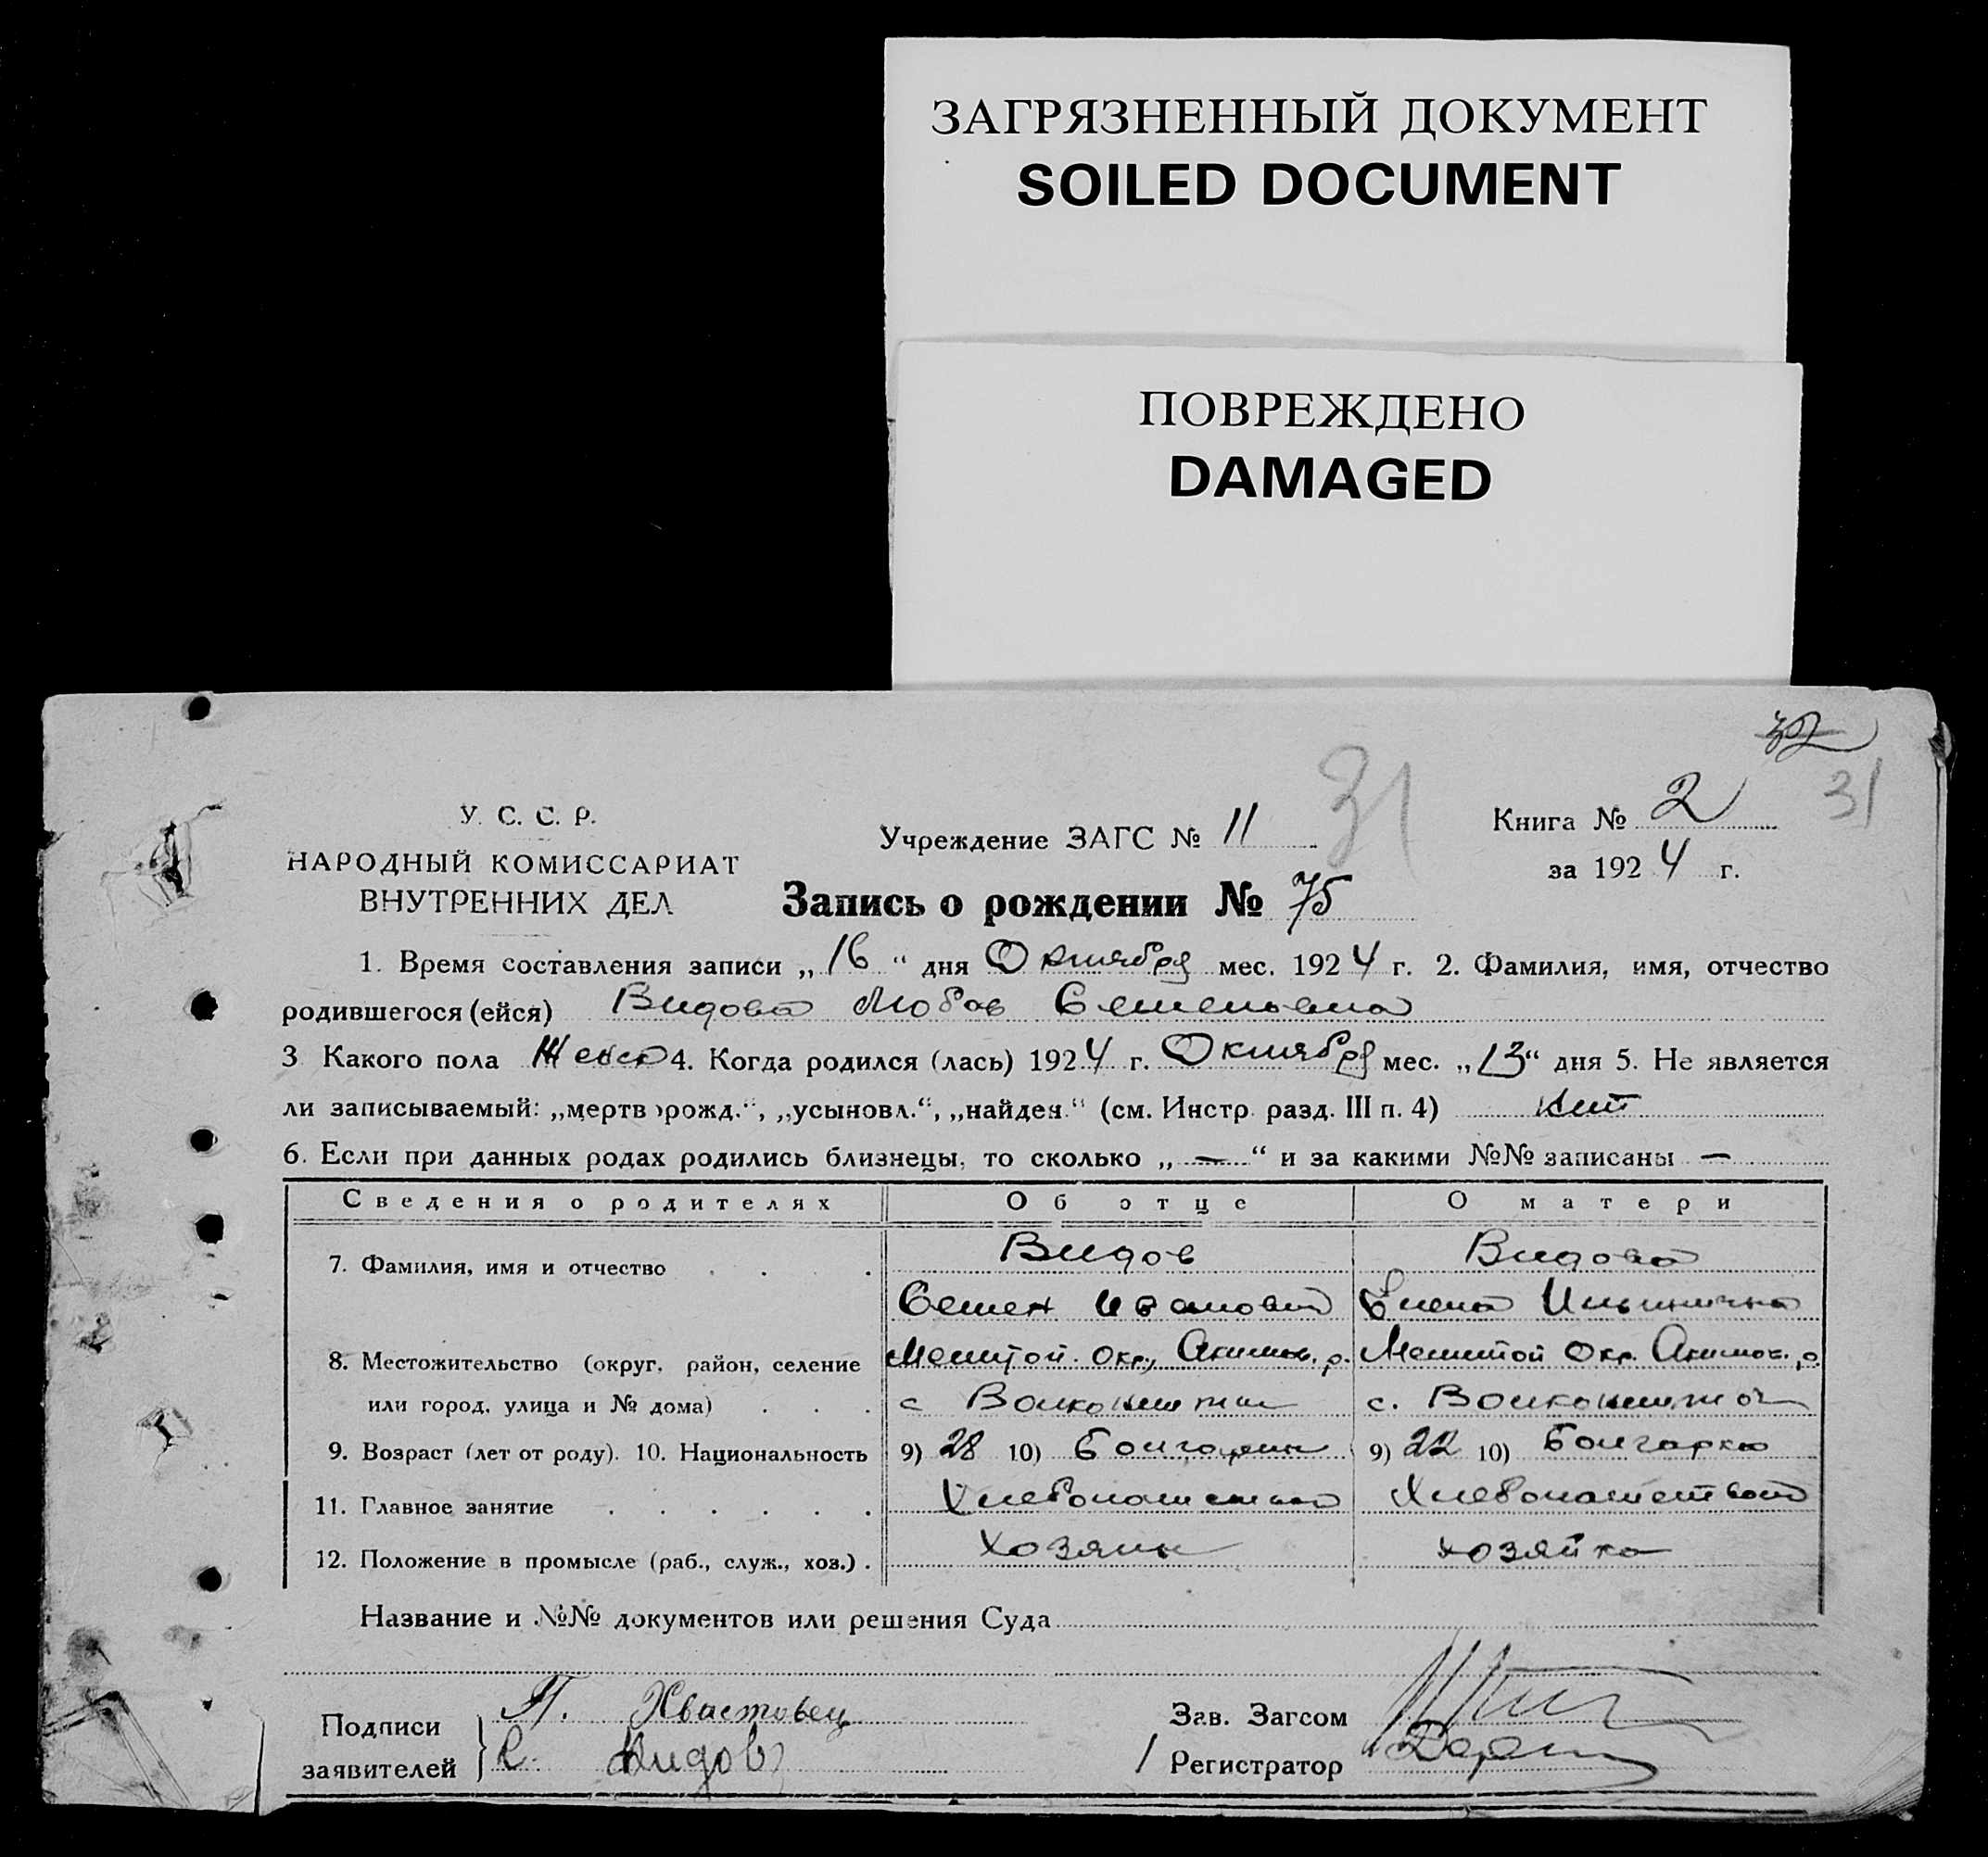 ЗАГРЯЗНЕННЫЙ ДОКУМЕНТ
SOILED DOCUMENT
ПОВРЕЖДЕНО
DAMAGED
32
31
У. С. С. Р.
НАРОДНЫЙ КОМИССАРИАТ
ВНУТРЕННИХ ДЕЛ
Учреждение ЗАГС № 11
31
Книга № 2
за 1924 г.
Запись о рождении № 75
1. Время составления записи „16“ дня Октября мес. 1924 г. 2. Фамилия, имя, отчество
родившегося (ейся) Видова Любов Семеновна
3 Какого пола Женск 4. Когда родился (лась) 1924 г. Октября мес. „13“ дня 5. Не является
ли записываемый: „мертворожд.“, „усыновл.“, „найден.“ (см. Инстр. разд. III п. 4) нет
6. Если при данных родах родились близнецы, то сколько „—“ и за какими №№ записаны —
Сведения о родителях Об отце О матери
7. Фамилия, имя и отчество . . . Видов Видова
Семен Иванович Елена Ильинична
8. Местожительство (округ, район, селение Мелитой. Окр., Акимов. р. Мелитой Окр. Акимов. р
или город, улица и № дома) . . . с
9. Возраст (лет от роду). 10. Национальность 9) 28 10) Болгарин 9) 22 10) Болгарка
11. Главное занятие . . . . . . Хлебопашество Хлебопашество
12. Положение в промысле (раб., служ., хоз.) . хозяин хозяйка
Название и №№ документов или решения Суда
Подписи
заявителей
П. Хвастовец
С. Видов
Зав. Загсом
/ Регистратор